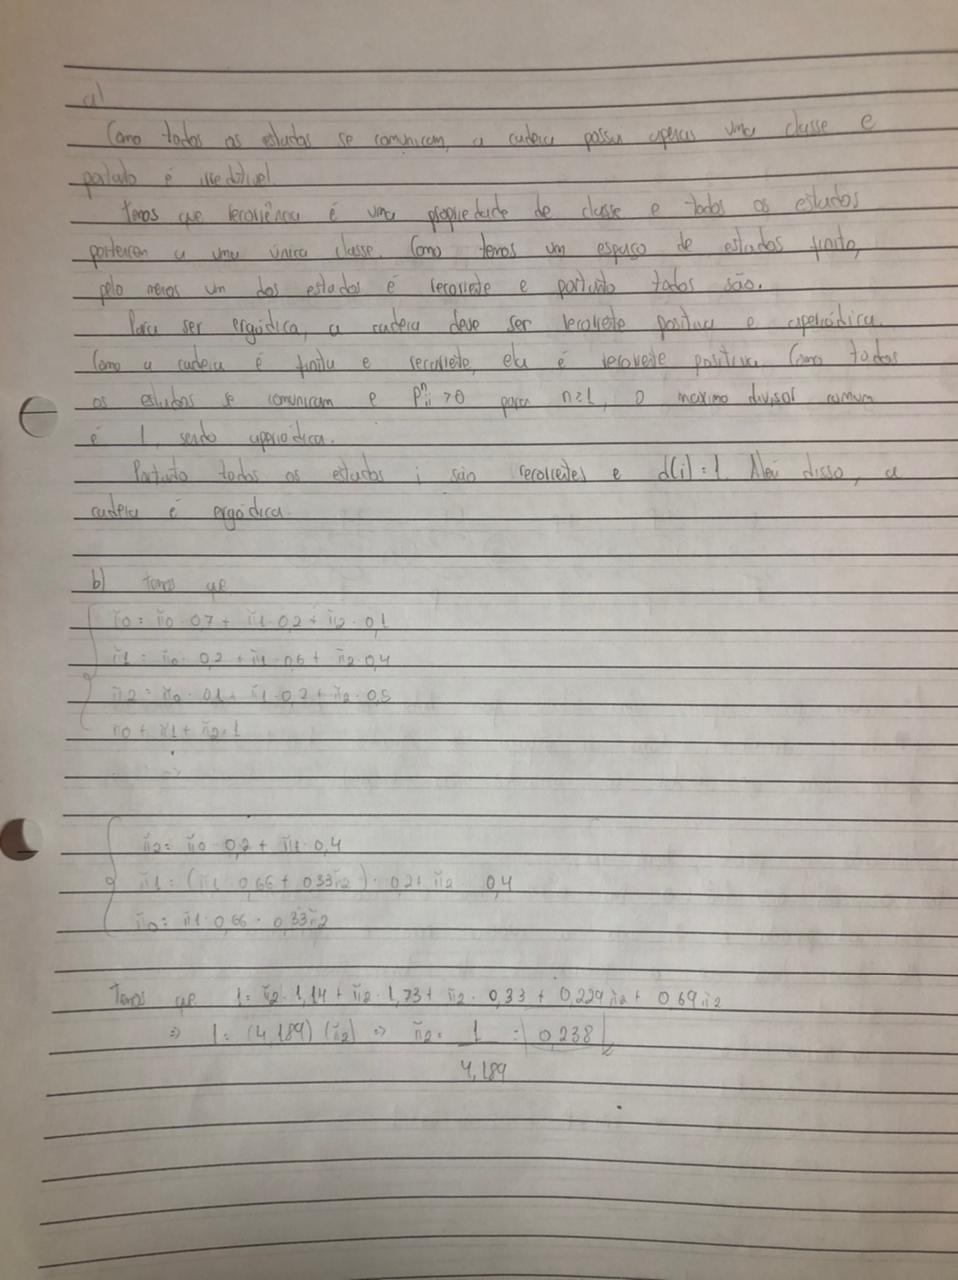 a)
Como todos os estados se comunicam, a cadeia possui apenas uma classe e
portanto é irredutível.
Temos que recorrência é uma propriedade de classe e todos os estados
pertencem a uma única classe. Como temos um espaço de estados finito,
pelo menos um dos estados é recorrente e portanto todos são.
Para ser ergódica, a cadeia deve ser recorrente positiva e aperiódica.
Como a cadeia é finita e recorrente, ela é recorrente positiva. Como todos
os estados se comunicam e Pⁿii > 0 para n≥1, o maximo divisor comum
é 1, sendo aperiódica.
Portanto todos os estados i são recorrentes e d(i) = 1. Além disso, a
cadeia é ergódica.
b) temos que
π0 = π0 · 0,7 + π1 · 0,2 + π2 · 0,1
π1 = π0 · 0,2 + π1 · 0,6 + π2 · 0,4
π2 = π0 · 0,1 + π1 · 0,2 + π2 · 0,5
π0 + π1 + π2 = 1
π2 = π0 · 0,2 + π1 · 0,4
π1 = (π1 · 0,66 + 0,33π2) · 0,2 + π2 · 0,4
π0 = π1 · 0,66 · 0,33π2
Temos que 1 = π2 · 1,14 + π2 · 1,73 + π2 · 0,33 + 0,229π2 + 0,69π2
=> 1 = (4,189) (π2) => π2 = 1 = 0,238
4,189